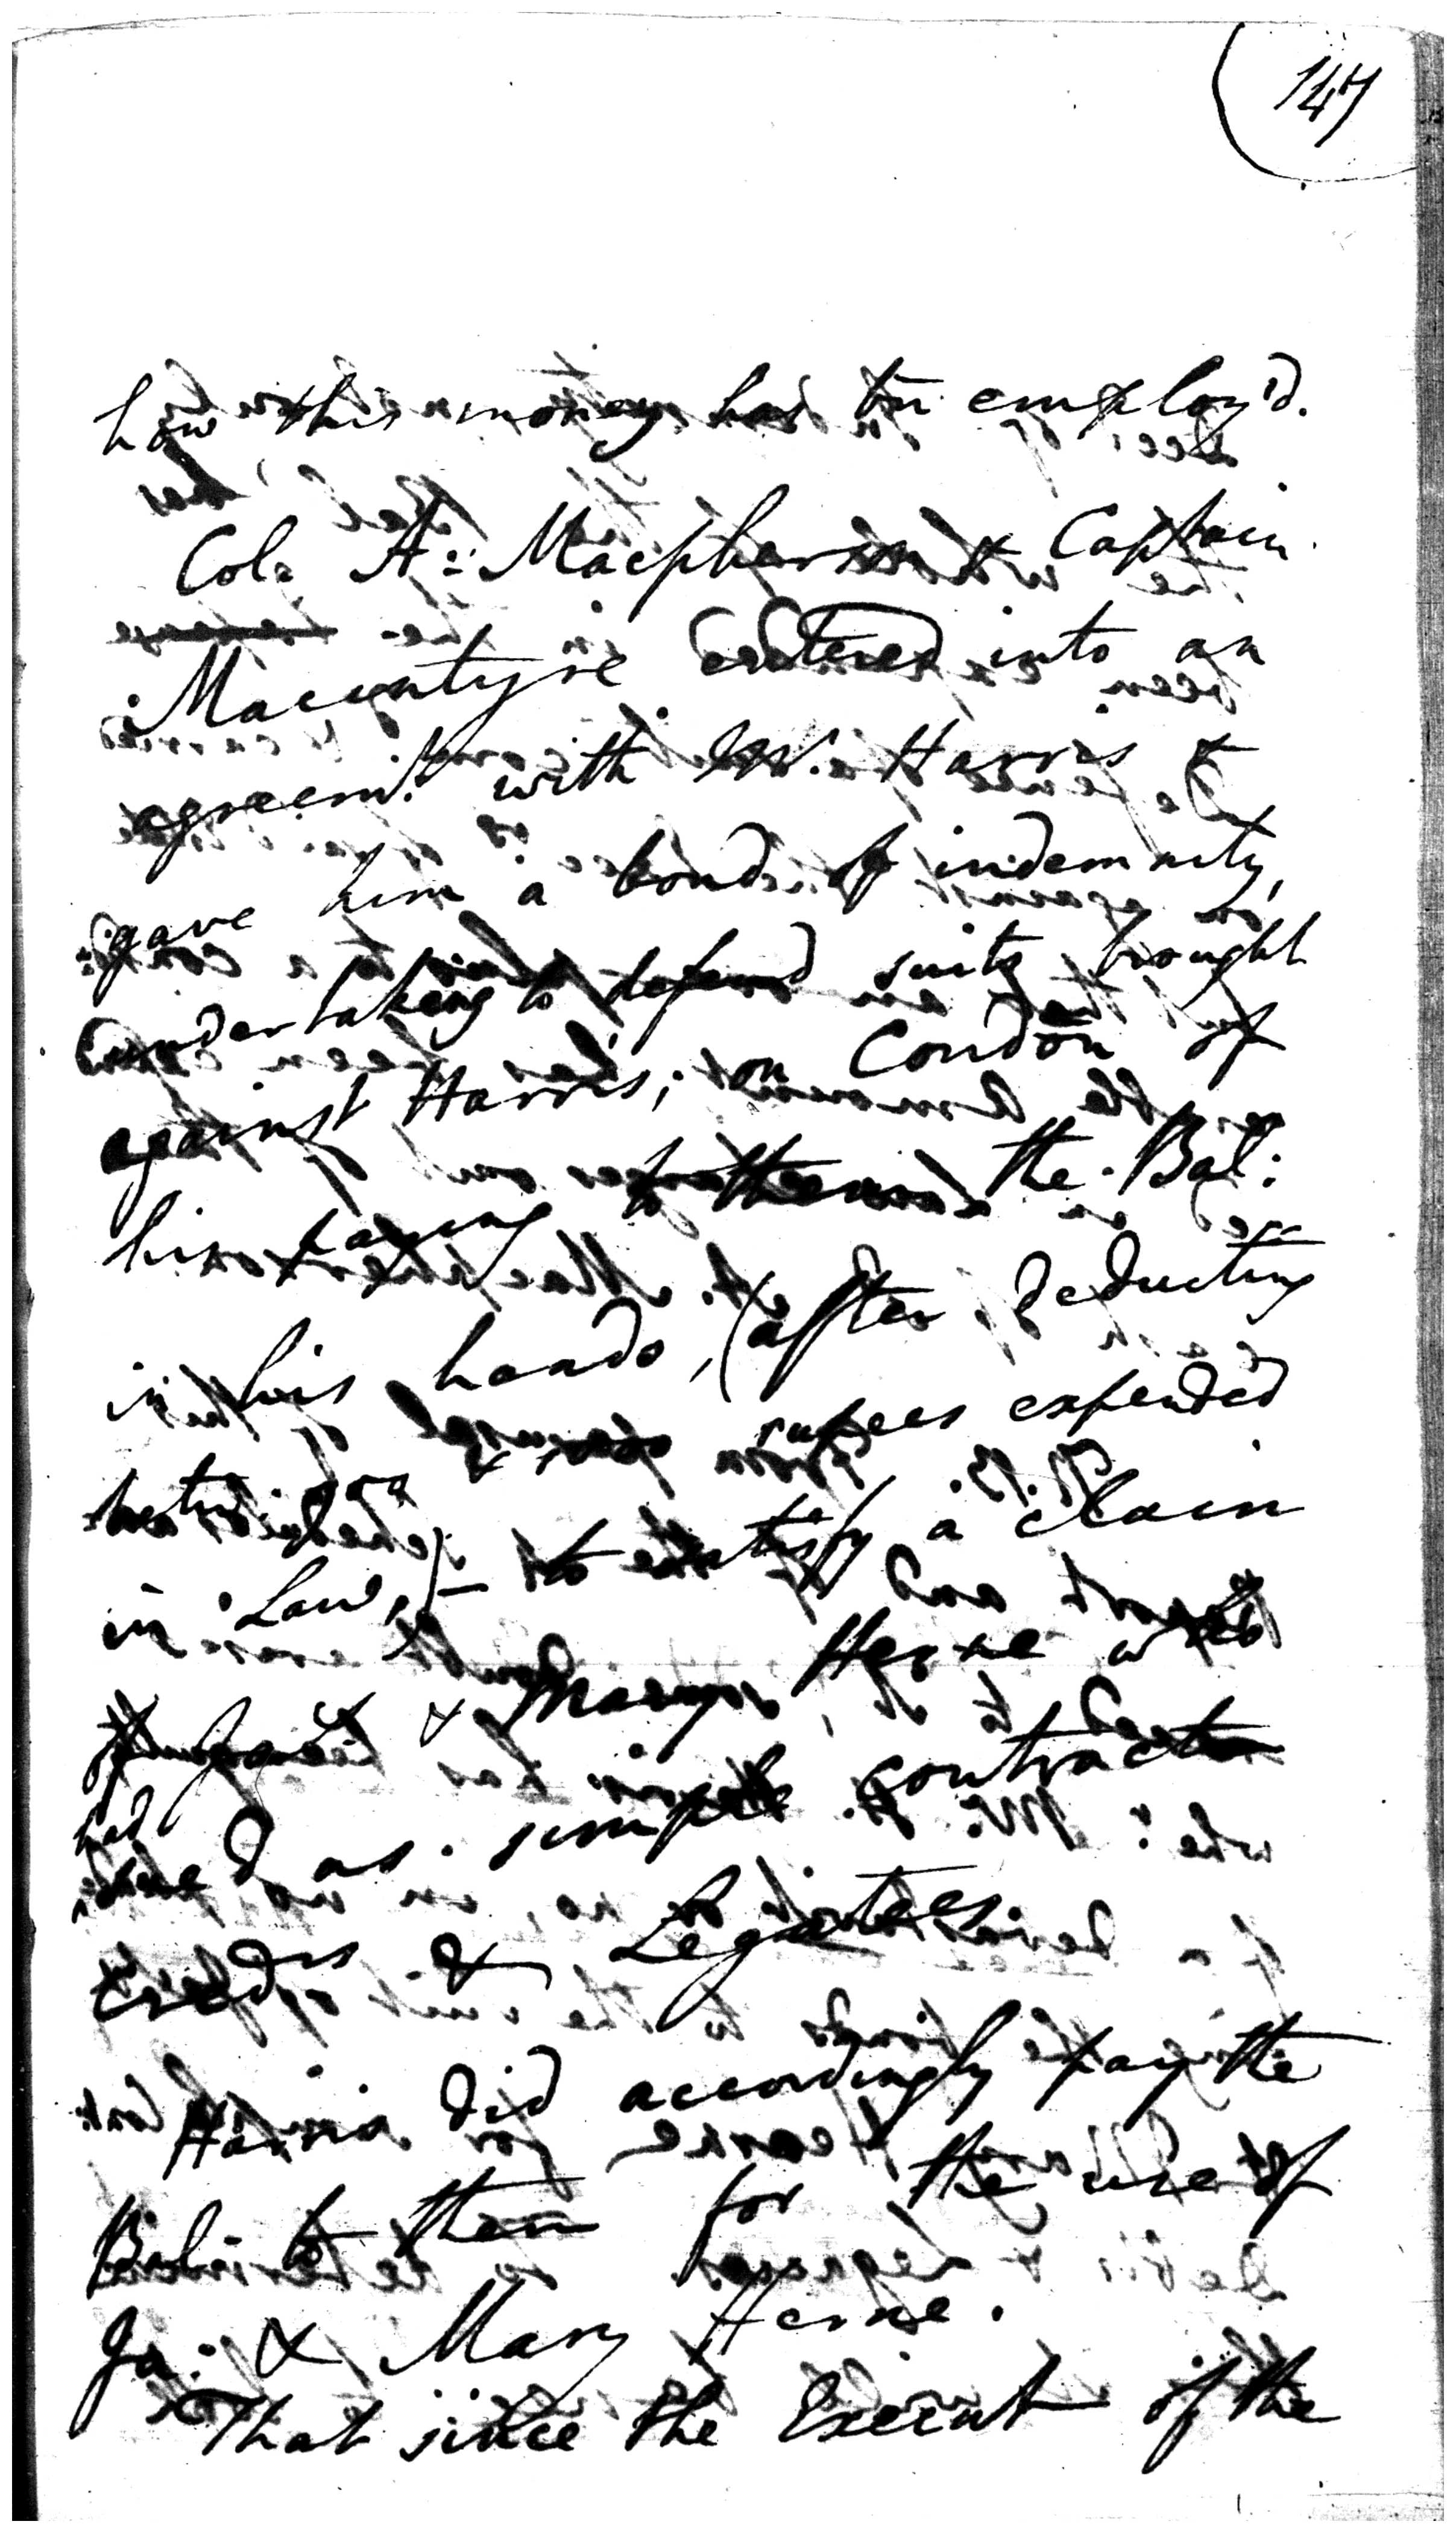 147
how this money has bn̄ employ'd.
Col: A: Macpherson & Captain
Macintyre entered into an
agreemt. with W. Harris &
gave him a bond of indemnity,
undertaking to defend suits brought
against Harris; on Condōn of
his paying to them the Bal:
in his hands, (after deducting
rupees expended
in Law,) — to satisfy a Claim
of & Mary Herne who
had
sued as simple contract
Credrs & Legatees.
Harris did accordingly pay the
Bal: to them for the use of
Ja: & Mary Herne.
That since the Execut of the